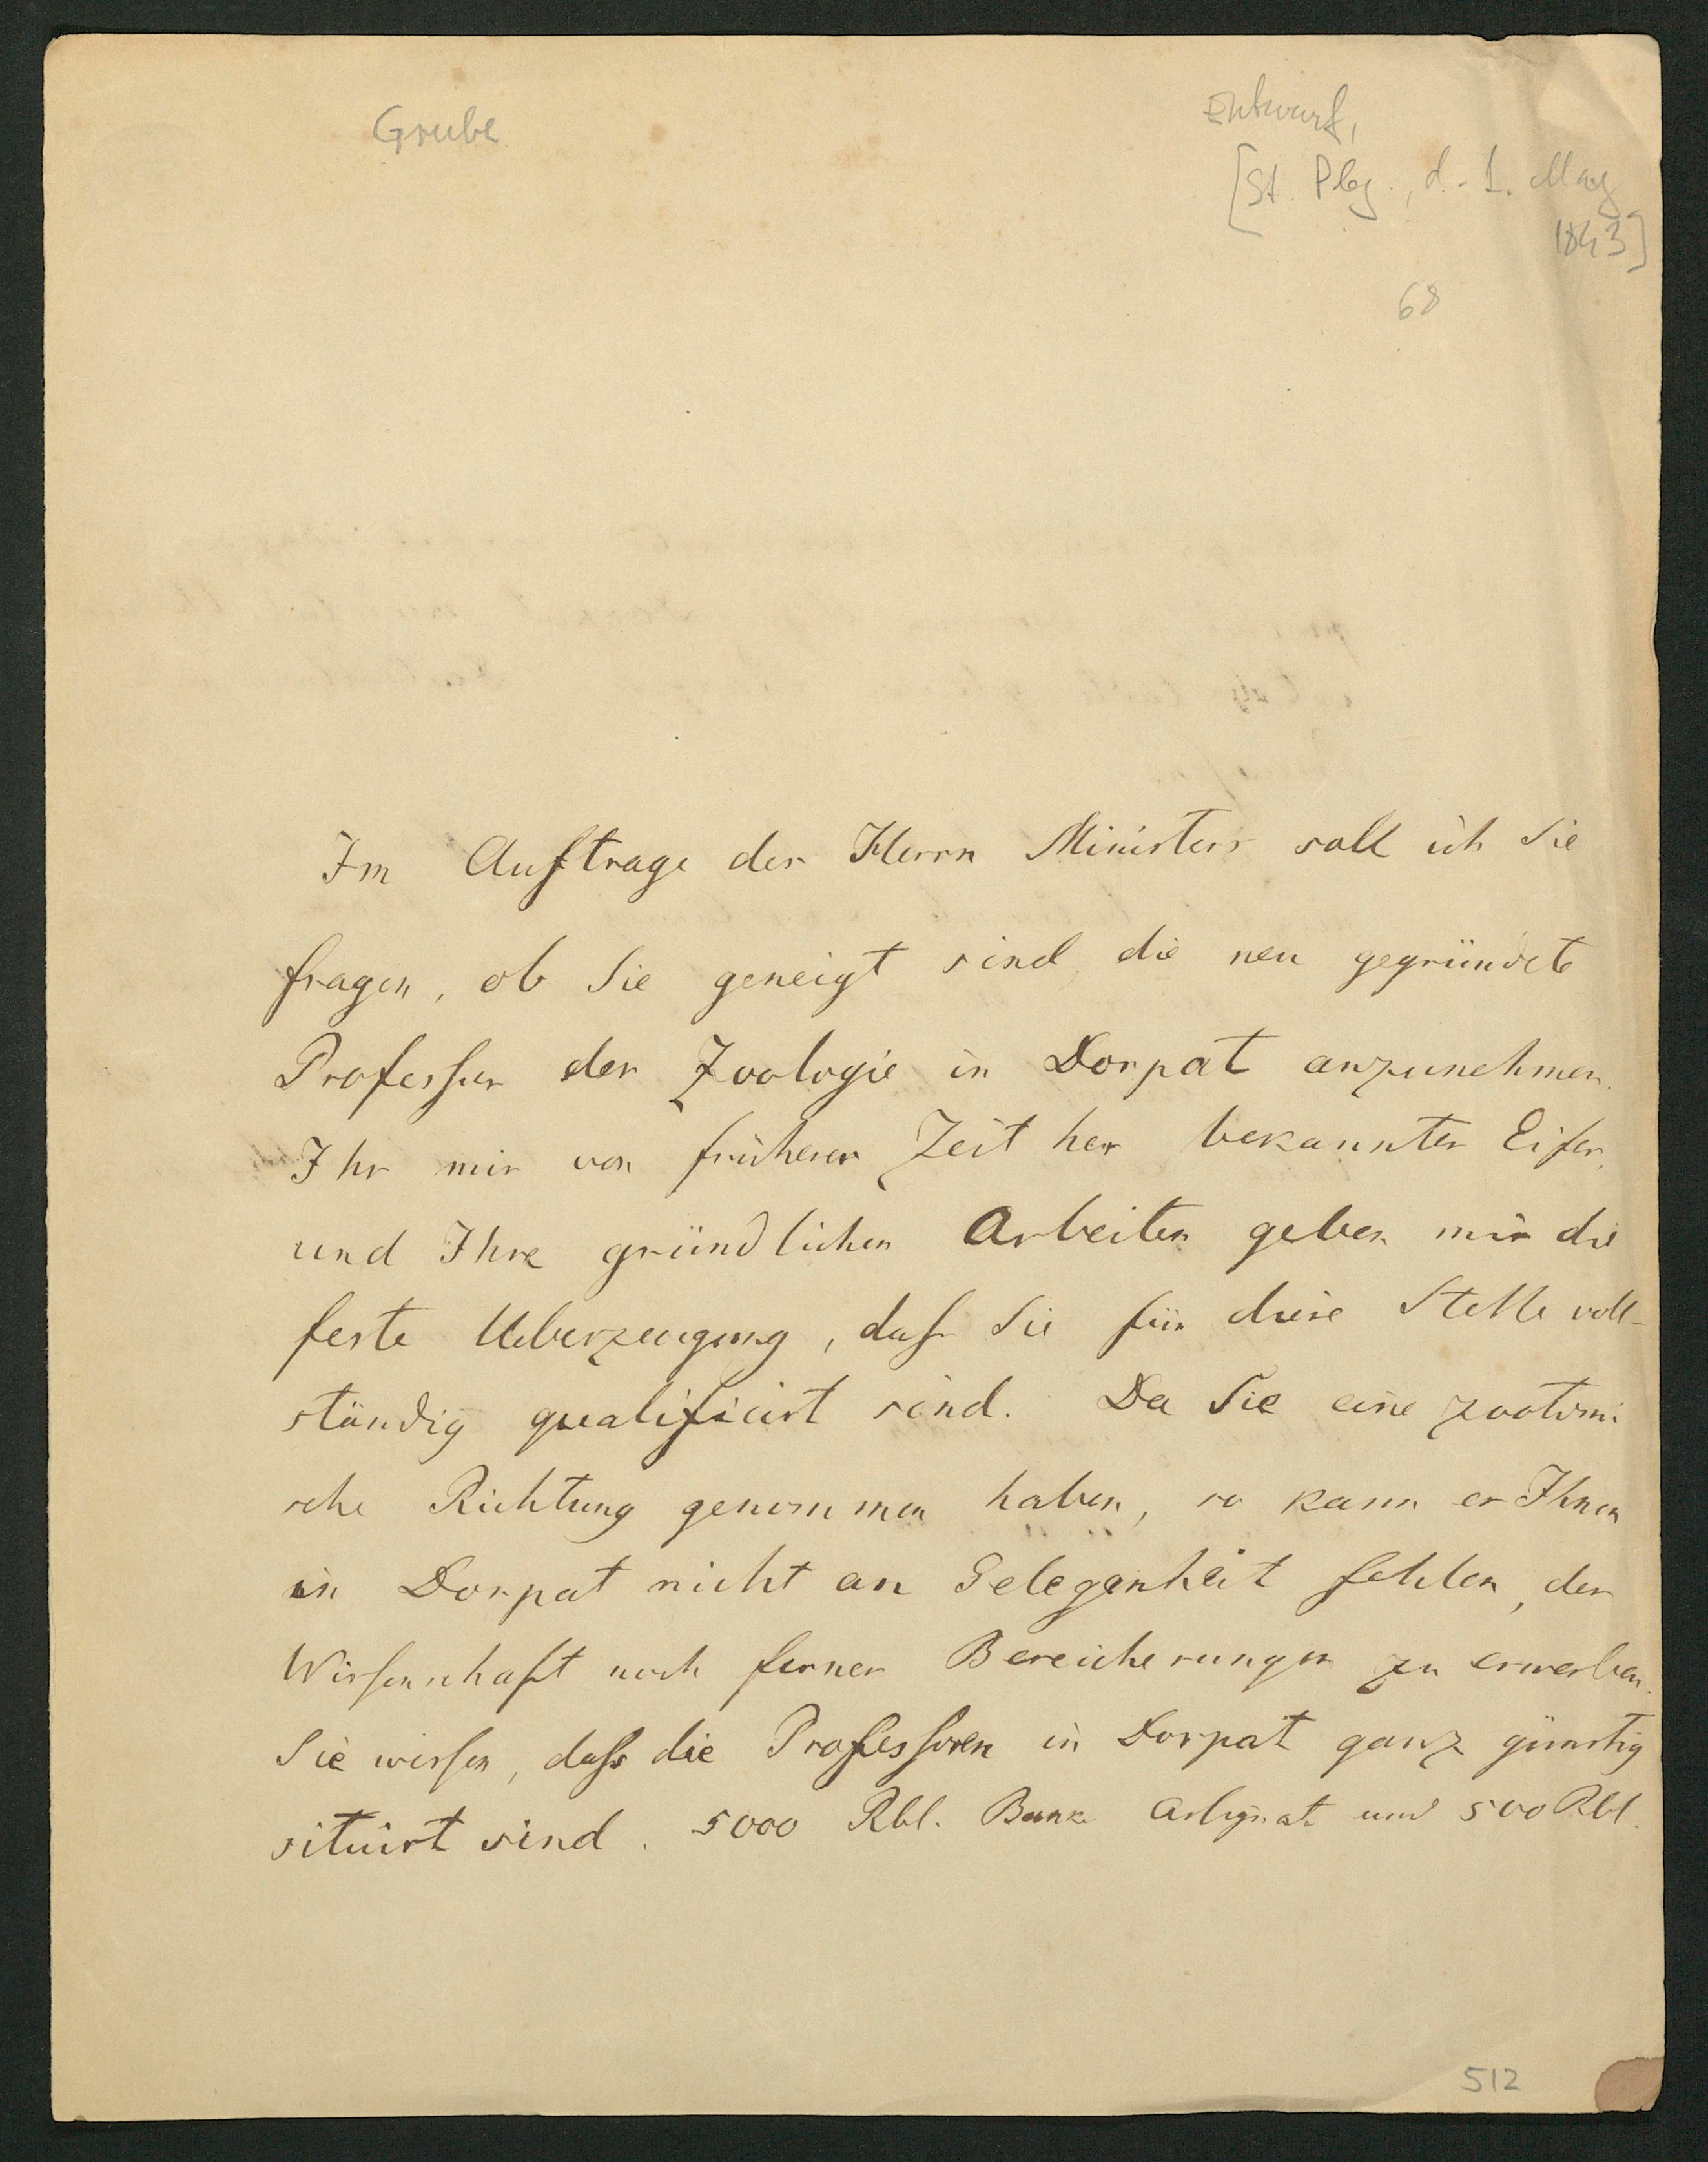 Grube
Entwurf,
[St. Pbg., d. 1. May
1843]
68
Im Auftrage des Herrn Ministers soll ich Sie
fragen, ob Sie geneigt sind, die neu gegründete
Professur der Zoologie in Dorpat anzunehmen.
Ihr mir von früherer Zeit her bekannter Eifer,
und Ihre gründlichen Arbeiten geben mir die
feste Ueberzeugung, daß Sie für diese Stelle voll-
ständig qualificirt sind. Da Sie eine zootomi
sche Richtung genommen haben, so kann es Ihnen
in Dorpat nicht an Gelegenheit fehlen, der
Wissenschaft noch ferner Bereicherungen zu erwerben.
Sie wissen, dass die Professoren in Dorpat ganz günstig
situirt sind. 5000 Rbl. Bank Assignat und 500 Rbl.
512